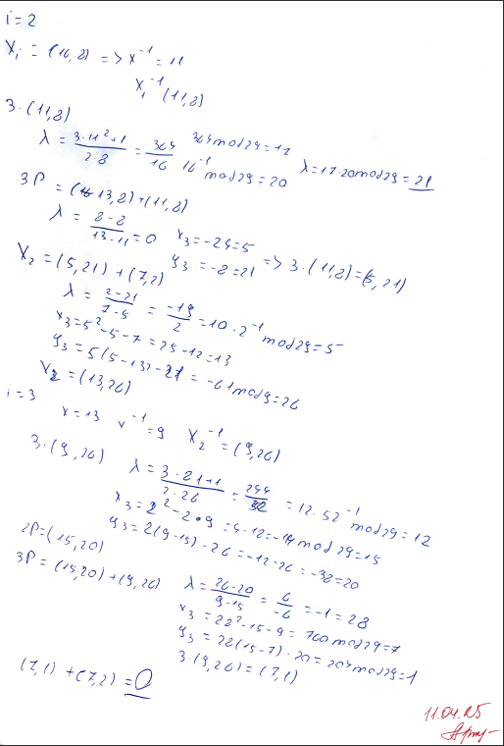 i=2
X_i = (16,8) => x^-1 = 11
X_i^-1 (11,8)
3·(11,8)
λ = (3·11²+1)/(2·8) = 364/16  364 mod 29 = 17  16^-1 mod 29 = 20  λ=17·20 mod 29 = 21
3P = (13,8)+(11,8)
λ = (8-8)/(13-11) = 0  x_3 = -24 = 5  y_3 = -8 = 21 => 3·(11,8) = (5,21)
X_2 = (5,21) + (7,2)
λ = (2-21)/(7-5) = -19/2 = 10·2^-1 mod 29 = 5
x_3 = 5² - 5 - 7 = 25 - 12 = 13
y_3 = 5(5-13) - 21 = -61 mod 29 = 26
X_2 = (13,26)
i=3
x=13  x^-1 = 9  X_2^-1 = (9,26)
3·(9,26)
λ = (3·81+1)/(2·26) = 244/52 = 12·52^-1 mod 29 = 12
x_3 = 2² - 2·9 = 4-18 = -14 mod 29 = 15
y_3 = 2(9-15) - 26 = -12-26 = -38 = 20
2P = (15,20)
3P = (15,20) + (9,26)
λ = (26-20)/(9-15) = 6/-6 = -1 = 28
x_3 = 28² - 15 - 9 = 760 mod 29 = 7
y_3 = 28(15-7) - 20 = 204 mod 29 = 1
3·(9,26) = (7,1)
(7,1) + (7,2) = O
11.04.25